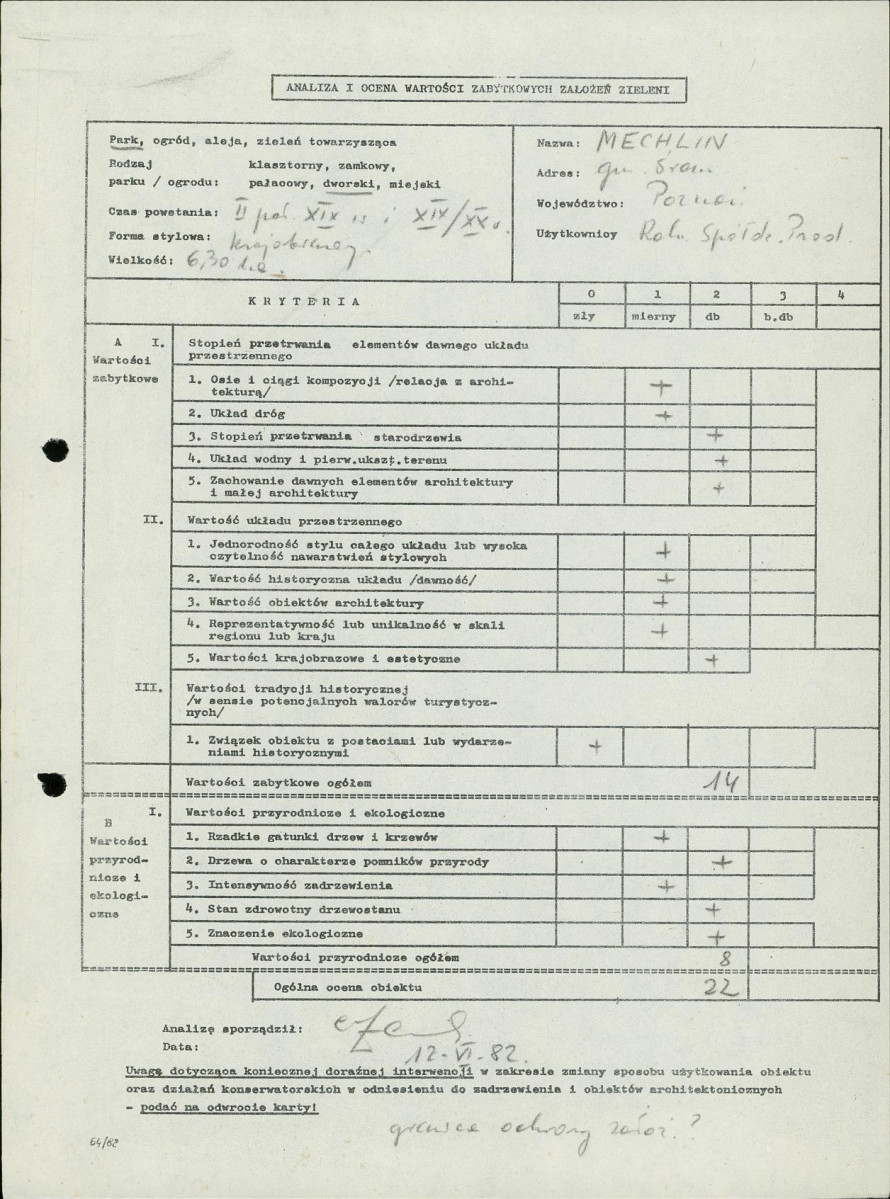 ANALIZA I OCENA WARTOŚCI ZABYTKOWYCH ZAŁOŻEŃ ZIELENI
Park, ogród, aleja, zieleń towarzysząca
Rodzaj klasztorny, zamkowy,
parku / ogrodu: pałacowy, dworski, miejski
Czas powstania: II poł. XIX w i XIX/XX w.
Forma stylowa: krajobrazowy
Wielkość: 6,30 ha.
Nazwa: MECHLIN
Adres: gm. Śrem
Województwo: Poznań
Użytkownicy Roln. Spółdz. Prod.
KRYTERIA 0 1 2 3 4
zły mierny db b.db
A I. Stopień przetrwania elementów dawnego układu
Wartości przestrzennego
zabytkowe 1. Osie i ciągi kompozycji /relacja z archi-
tekturą/ +
2. Układ dróg +
3. Stopień przetrwania starodrzewia +
4. Układ wodny i pierw.ukszt.terenu +
5. Zachowanie dawnych elementów architektury
i małej architektury +
II. Wartość układu przestrzennego
1. Jednorodność stylu całego układu lub wysoka
czytelność nawarstwień stylowych +
2. Wartość historyczna układu /dawność/ +
3. Wartość obiektów architektury +
4. Reprezentatywność lub unikalność w skali
regionu lub kraju +
5. Wartości krajobrazowe i estetyczne +
III. Wartości tradycji historycznej
/w sensie potencjalnych walorów turystycz-
nych/
1. Związek obiektu z postaciami lub wydarze-
niami historycznymi +
Wartości zabytkowe ogółem 14
I. Wartości przyrodnicze i ekologiczne
B
Wartości
przyrod-
nicze i
ekologi-
czne
1. Rzadkie gatunki drzew i krzewów +
2. Drzewa o charakterze pomników przyrody +
3. Intensywność zadrzewienia +
4. Stan zdrowotny drzewostanu +
5. Znaczenie ekologiczne +
Wartości przyrodnicze ogółem 8
Ogólna ocena obiektu 22
Analizę sporządził:
Data: 12-VI-82.
Uwagę dotyczącą koniecznej doraźnej interwencji w zakresie zmiany sposobu użytkowania obiektu
oraz działań konserwatorskich w odniesieniu do zadrzewienia i obiektów architektonicznych
- podać na odwrocie karty!
granice ochrony założ.?
64/82